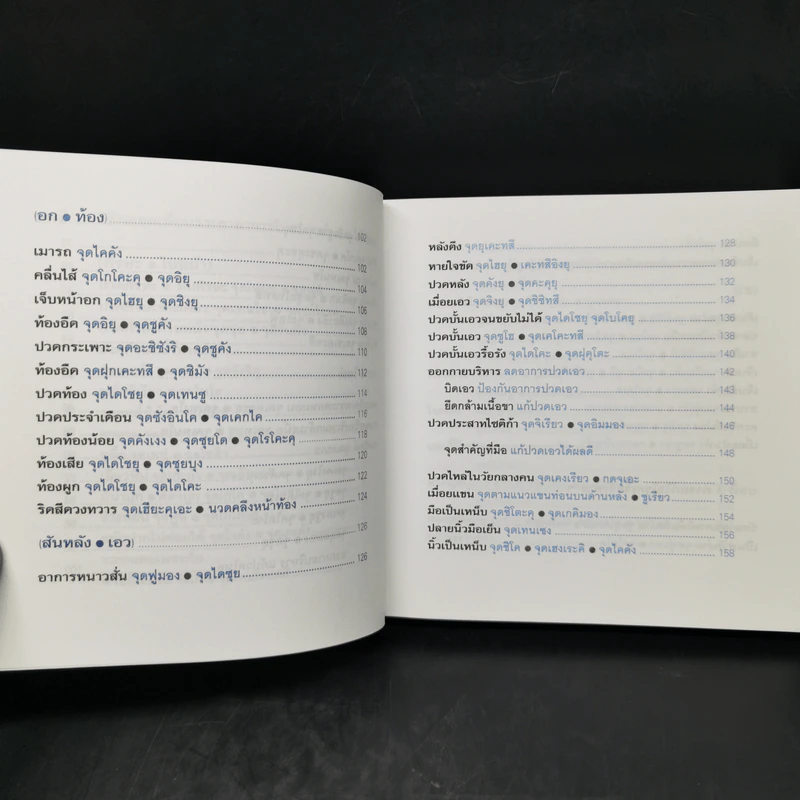 (อก ● ท้อง) 102
เมารถ จุดไคคัง 102
คลื่นไส้ จุดโกโคะคุ ● จุดอิยุ 104
เจ็บหน้าอก จุดไฮยุ ● จุดชิงยุ 106
ท้องอืด จุดอิยุ ● จุดชูคัง 108
ปวดกระเพาะ จุดอะชิซังริ ● จุดชูคัง 110
ท้องอืด จุดฝุกเคะทสึ ● จุดชิมัง 112
ปวดท้อง จุดไดโชยุ ● จุดเทนซู 114
ปวดประจำเดือน จุดซังอินโค ● จุดเคกไค 116
ปวดท้องน้อย จุดคังเงง ● จุดซุยโด ● จุดโรโคะคุ 118
ท้องเสีย จุดไดโชยุ ● จุดซุยบุง 120
ท้องผูก จุดไดโชยุ ● จุดไดโคะ 122
ริดสีดวงทวาร จุดเฮียะคุเอะ ● นวดคลึงหน้าท้อง 124
(สันหลัง ● เอว) 126
อาการหนาวสั่น จุดฟูมอง ● จุดไดซุย 126
หลังตึง จุดยุเคะทสึ 128
หายใจขัด จุดไฮยุ ● เคะทสึอิงยุ 130
ปวดหลัง จุดคังยุ ● จุดคะคุยุ 132
เมื่อยเอว จุดจิงยุ ● จุดชิชิทสึ 134
ปวดบั้นเอวจนขยับไม่ได้ จุดไดโชยุ จุดโบโคยุ 136
ปวดบั้นเอว จุดชูโฮ ● จุดเคโคะทสึ 138
ปวดบั้นเอวรื้อรัง จุดไดโคะ ● จุดฝุคุโตะ 140
ออกกายบริหาร ลดอาการปวดเอว 142
บิดเอว ป้องกันอาการปวดเอว 143
ยืดกล้ามเนื้อขา แก้ปวดเอว 144
ปวดประสาทไซติก้า จุดจิเรียว ● จุดอิมมอง 146
จุดสำคัญที่มือ แก้ปวดเอวได้ผลดี 148
ปวดไหล่ในวัยกลางคน จุดเคงเรียว ● กดจุเอะ 150
เมื่อยแขน จุดตามแนวแขนท่อนบนด้านหลัง ● ชูเรียว 152
มือเป็นเหน็บ จุดชิโตะคุ ● จุดเกคิมอง 154
ปลายนิ้วมือเย็น จุดเทนเซง 156
นิ้วเป็นเหน็บ จุดชิโค ● จุดเฮงเระคิ ● จุดไคคัง 158